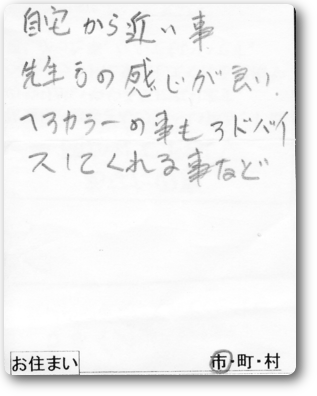 自宅から近い事
先生方の感じが良い.
ヘアカラーの事もアドバイ
スしてくれる事など
お住まい 市・町・村